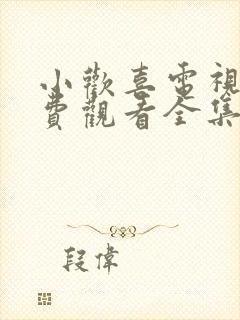 小歡喜電視
費觀看全集
段偉